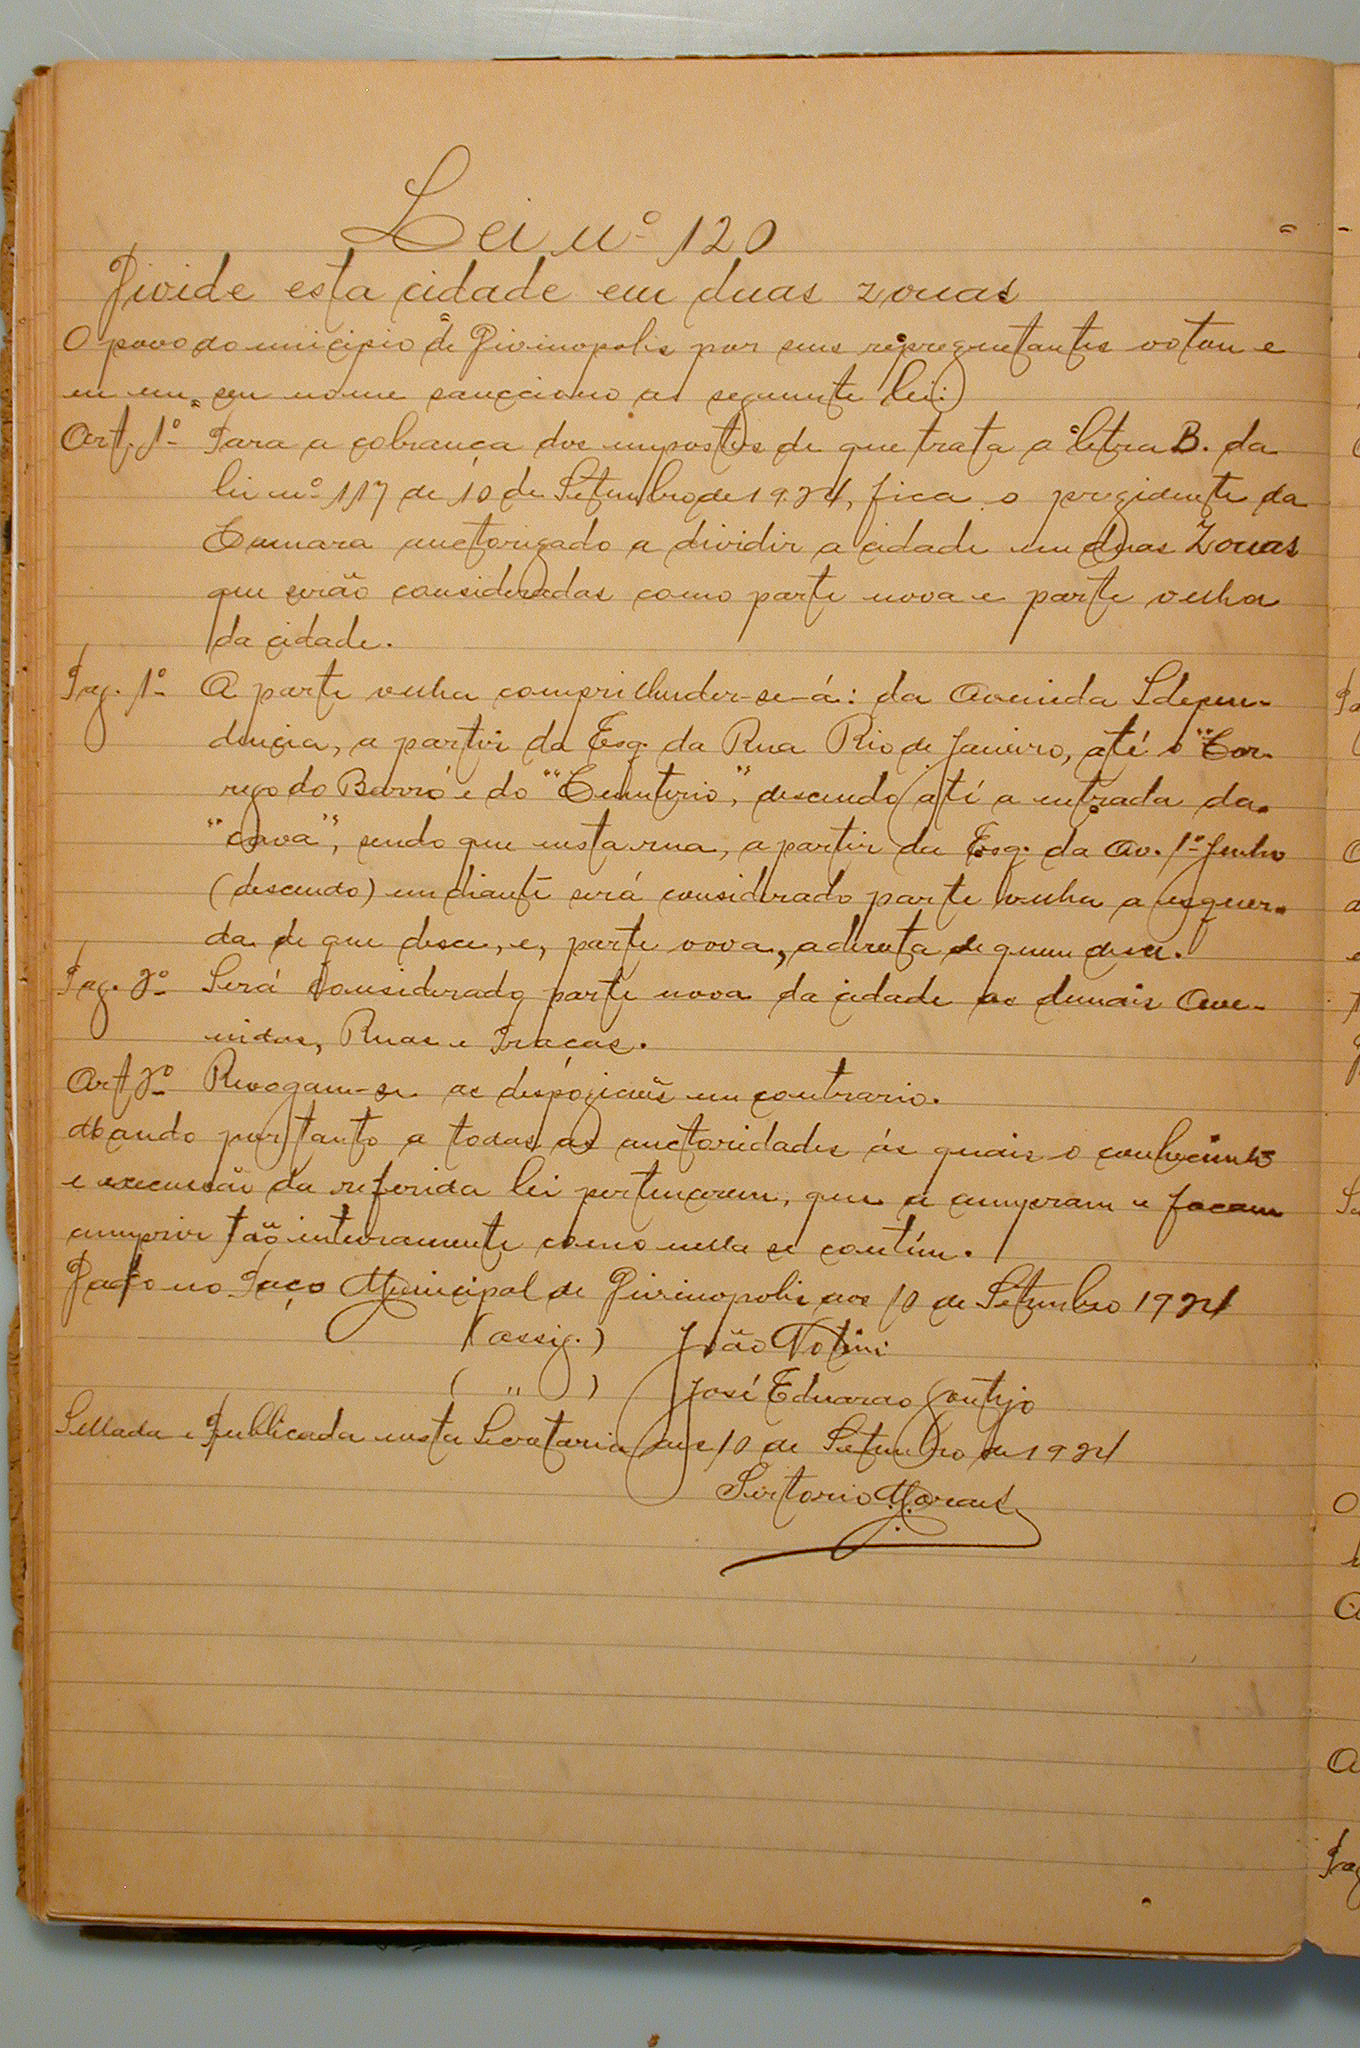 Lei nº 120
Divide esta cidade em duas zonas
O povo do municipio de Divinopolis por seus reprezentantes votou e
eu em seu nome sancciono a seguinte lei:
Art. 1º Para a cobrança dos impostos de que trata a letra B. da
lei nº 117 de 10 de Setembro de 1924, fica o prezidente da
Camara auctorizado a dividir a cidade em duas Zonas
que serão consideradas como parte nova e parte velha
da cidade.
Pag. 1º A parte velha comprehender-se-á: da Avenida Idepen-
dencia, a partir da Esq. da Rua Rio de Janeiro, até o "Cor-
rego do Barro" e do "Cemiterio", descendo até a entrada da
"cava", sendo que nesta rua, a partir da Esq. da Av. 1º Junho
(descendo) em diante será considerado parte velha a esquer-
da de que desce, e, parte nova, a direita de quem desce.
Pag. 2º Será considerado parte nova da cidade as demais Ave-
nidas, Ruas e Praças.
Art 2º Revogam-se as dispozicões em contrario.
Mando portanto a todas as auctoridades ás quais o conhecimto
e execussão da referida lei pertencerem, que a cumpram e facam
cumprir tão inteiramente como nella se contém.
Dado no Paço Municipal de Divinopolis aos 10 de Setembro 1924
(assig.) João Notini
( " ) José Eduardo Gontijo
Sellada e Publicada nesta Secretaria aos 10 de Setembro de 1924
Sertorio Moraes